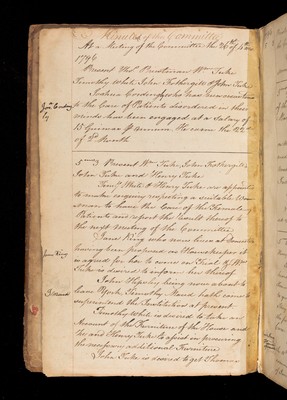 Minutes of the Committee
At a Meeting of the Committee the 26th of 4 mo
1796
Present Thos Priestman Wm Tuke
Timothy White John Fothergill & John Tuke
Joshua Cordingley who has been
to the Care of Patients disordered in their
minds has been engaged at a Salary of
15 Guineas p annum. He came the
of Lt Month
5 mo 3 Present Wm Tuke, John Fothergill
John Tuke and Henry Tuke
Timy White & Henry Tuke are appointed
to make enquiry respecting a suitable Wo-
man to have the Care of the Female
Patients and report the result thereof to
the next Meeting of the Committee
Jane King who now lives at
having been proposed as Housekeeper it
is agreed for her to come on Trial & Wm
Tuke is desired to inform her thereof
John Hipsley being now about to
leave York Timothy Maud hath come to
superintend the Institution at present
Timothy White is desired to take an
Account of the Furniture of the House and
he and Henry Tuke to assist in procuring
the necessary additional Furniture
John Tuke is desired to get
Josa Cording
ly
Jane King
T Maud